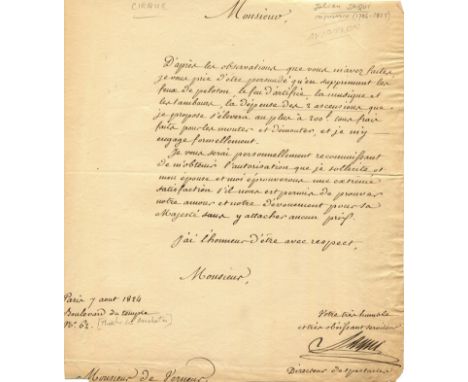 CIRQUE
Monsieur
AVIATION
D'après les observations que vous m'avez faites,
je vous prie d'être persuadé qu'en supprimant les
feux de peloton, le feu d'artifice, la musique et
les tambours, la dépense des 2 ascensions que
je propose s'élevera au plus à 200f. tous frais
faits pour les monter et démonter, et je m'y
engage formellement.
Je vous serai personnellement reconnaissant
de m'obtenir l'autorisation que je sollicite et
mon épouse et moi éprouverons une extrême
satisfaction s'il nous est permis de prouver
notre amour et notre dévouement pour sa
Majesté sans y attacher aucun prix.
J'ai l'honneur d'être avec respect,
Monsieur,
Paris 7 aout 1824
Boulevard du temple
N° 62.
Votre très humble
et très obéissant serviteur
Saqui
Directeur de spectacles
Monsieur de Verneur,